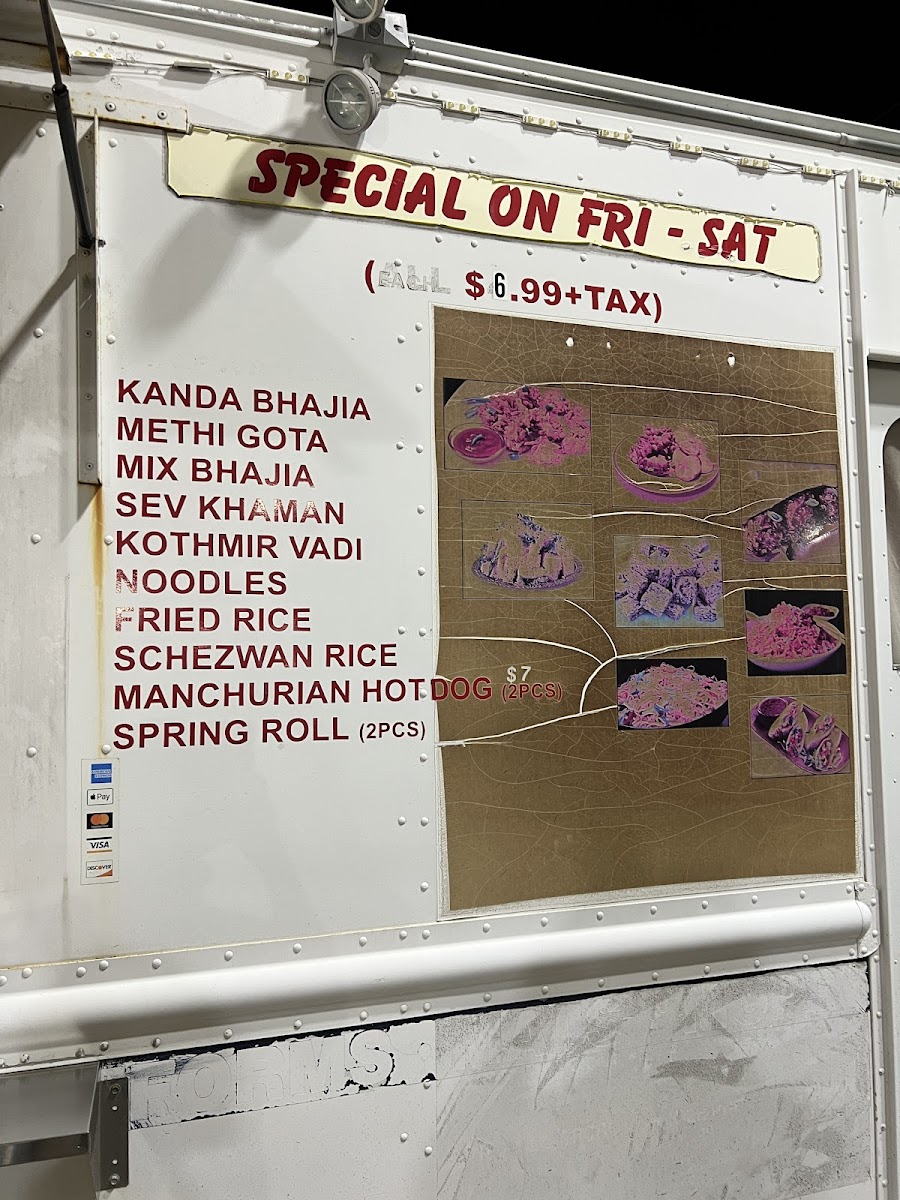 SPECIAL ON FRI - SAT
(EACH $6.99+TAX)
KANDA BHAJIA
METHI GOTA
MIX BHAJIA
SEV KHAMAN
KOTHMIR VADI
NOODLES
FRIED RICE
SCHEZWAN RICE
$7
MANCHURIAN HOT DOG (2PCS)
SPRING ROLL (2PCS)
AMERICAN EXPRESS
Pay
VISA
DISCOVER